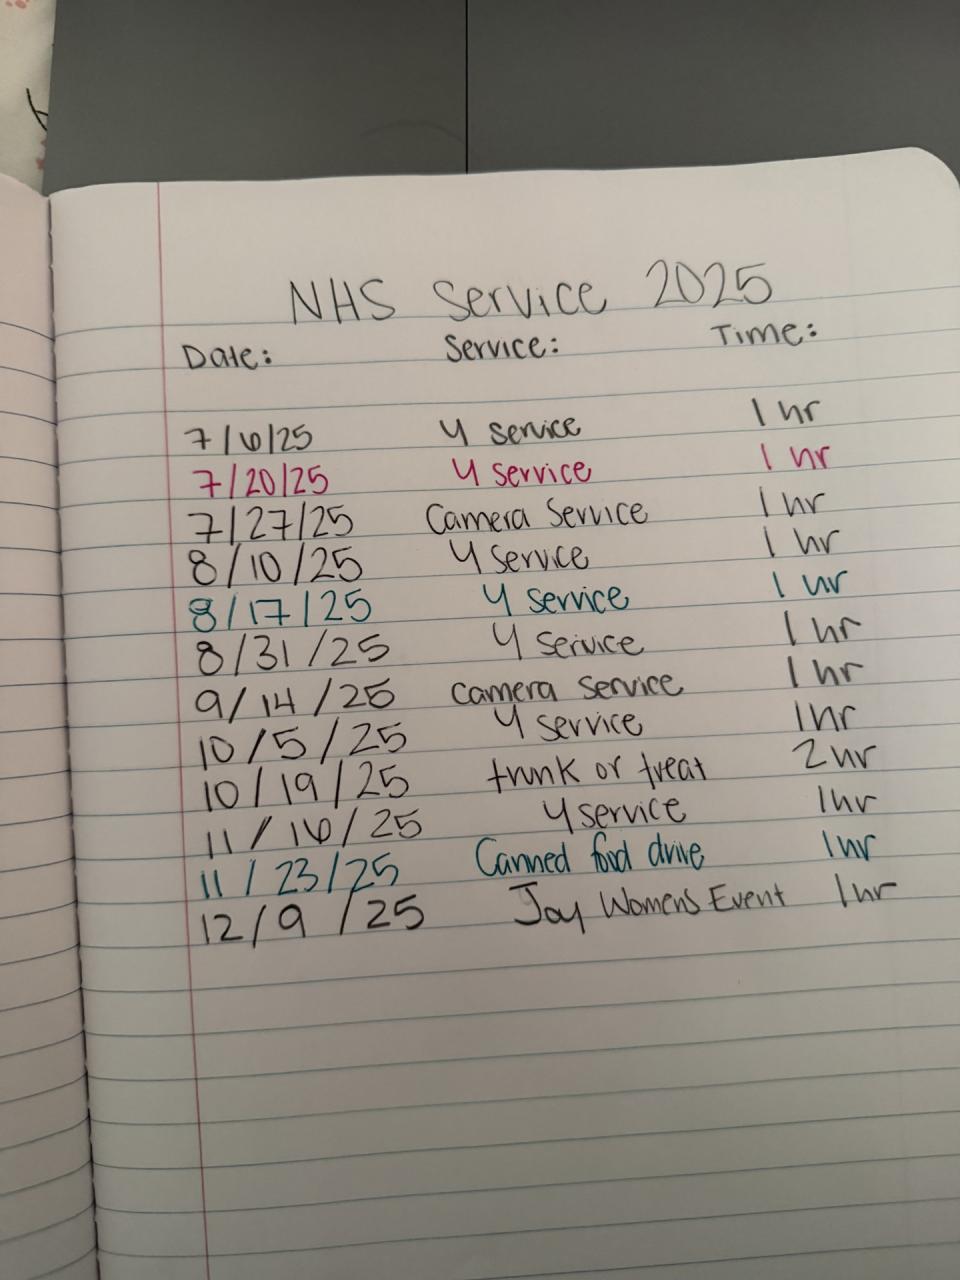 NHS Service 2025
Date: Service: Time:
7/6/25 Y service 1 hr
7/20/25 Y service 1 hr
7/27/25 Camera Service 1 hr
8/10/25 Y service 1 hr
8/17/25 Y service 1 hr
8/31/25 Y service 1 hr
9/14/25 Camera Service 1 hr
10/5/25 Y service 1hr
10/19/25 trunk or treat 2hr
11/16/25 Y service 1hr
11/23/25 Canned food drive 1hr
12/9/25 Joy Womens Event 1hr